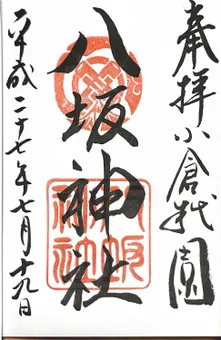 奉拝 小倉祇園
八坂神社
平成二十七年七月十九日